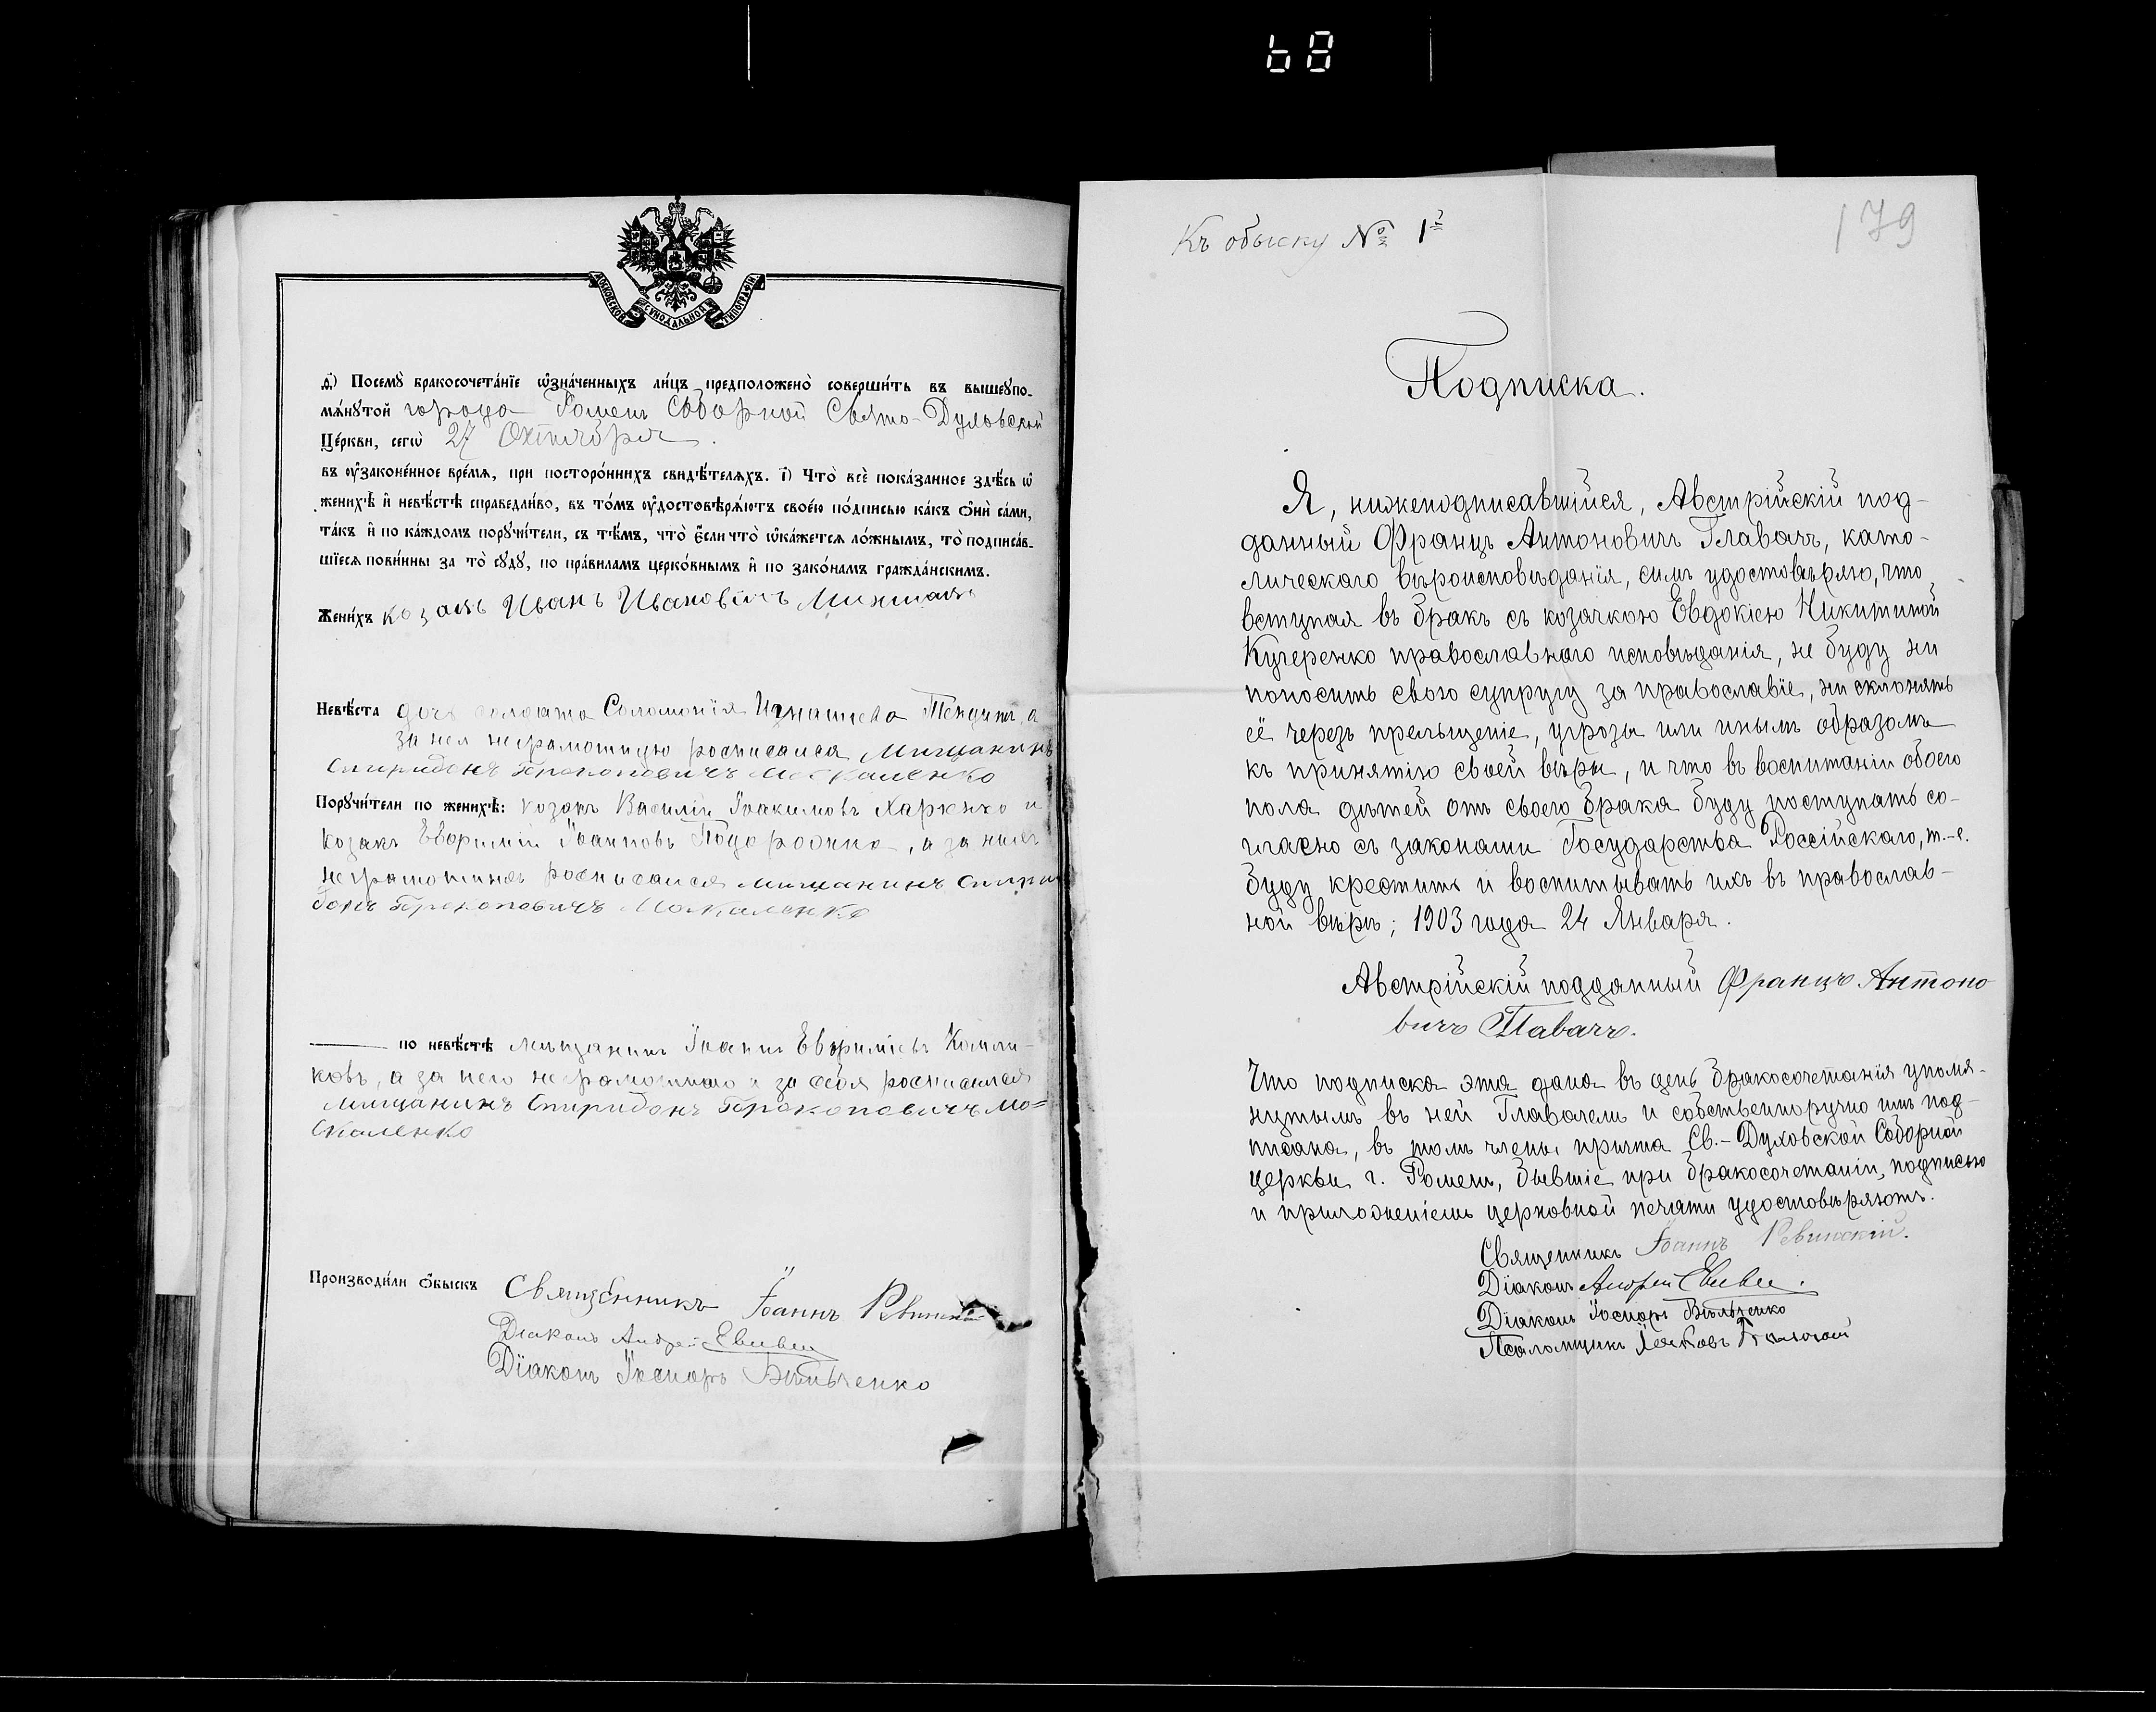 68
МОСКОВСКОЙ СѴНОДАЛЬНОЙ ТИПОГРАФІИ
д҃і) Посемꙋ̀ бракосочета́нїе ѡ҆зна́ченныхъ ли́цъ предположено̀ соверши́ть въ вышеꙋпо-
мѧ́нꙋтой города Ромен Соборной Свято-Духовской
Це́ркви, сегѡ̀ 27 Октября.
въ ᲂу҆законе́нное вре́мѧ, при посторо́ннихъ свидѣ́телѧхъ. і҃) Что̀ всѐ пока́занное здѣ́сь ѡ҆
женихѣ̀ и҆ невѣ́стѣ справедли́во, въ то́мъ ᲂу҆достовѣрѧ́ютъ свое́ю по́дписью ка́къ ѻ҆нѝ са́ми,
та́къ и҆ по ка́ждомъ порꙋчи́тели, съ тѣ́мъ, что̀ є҆́сли что̀ ѡ҆ка́жетсѧ ло́жнымъ, то̀ подписа́в-
шїесѧ пови́нны за то̀ сꙋдꙋ̀, по пра́виламъ церко́внымъ и҆ по зако́намъ гражда́нскимъ.
Жени́хъ козакъ Иванъ Ивановичъ
Невѣ́ста дочь солдата Соломонія Игнатиева а
за нея неграмотную росписался Мищанинъ
Спиридонъ Прокоповичъ Москаленко
Порꙋчи́тели по женихѣ̀: козакъ Василій Іоакимовъ Харченко и
козакъ Евфимій Іоанновъ а за нихъ
неграмотныхъ росписался мищанинъ Спири
донъ Прокоповичъ Москаленко
по невѣ́стѣ мѣщанинъ Іоаннъ Евфиміевъ
ковъ, а за него неграмотнаго и за себя росписался
мищанинъ Спиридонъ Прокоповичъ Мо=
скаленко
Производи́ли ѻ҆́быскъ Священникъ Іоаннъ Ревинскій
Діаконъ Андрей
Діаконъ Іосифъ Вильченко
Къ обыску № 1й
179
Подписка.
Я, нижеподписавшійся, Австрійскій под-
данный Францъ Антоновичъ Главачъ, като-
лическаго вѣроисповѣданія, симъ удостовѣряю, что
вступая въ бракъ съ козачкою Евдокіею Никитиной
Кучеренко православнаго исповѣданія, не буду ни
поносить свою супругу за православіе, ни склонять
её черезъ прельщеніе, угрозы или инымъ образомъ
къ принятію своей вѣры, и что въ воспитаніи обоего
пола дѣтей отъ своего брака буду поступать со-
гласно съ законами Государства Россійскаго, т.-е.
буду крестить и воспитывать ихъ въ православ-
ной вѣрѣ; 1903 года 24 Января.
Австрійскій подданный Францъ Антоно
вичъ Главачъ.
Что подписка эта дана въ день бракосочетанія упомя-
нутымъ въ ней Главачемъ и собственноручно имъ под-
писана, въ томъ члены причта Св.-Духовской Соборной
церкви г. Ромен, бывшіе при бракосочетаніи, подписью
и приложеніемъ церковной печати удостовѣряютъ.
Священникъ Іоаннъ Ревинскій.
Діаконъ Андрей
Діаконъ Іосифъ Вильченко
Псаломщикъ Іаковъ